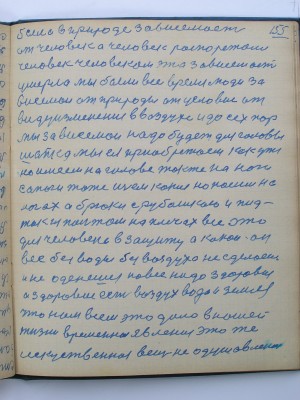 155
была в природе зависемаст
от человека человек распоряжали
человек человеком эта зависемаст
умерла мы были все время люди за
висемая от природы от условие от
видуизменения в воздухе и до сех пор
мы зависемая надо будет для головы
шапка мы её приабретаем как уже
на имеем на голове тоже на ноги
сапоги тоже имеем какия но носим на
ногах а брюки с рубашкаю и пид-
жак и пальтом на плечах все это
для человека в защиту а какой-он
вес без воды без воздуха не сделаеш
и не оденешся новые надо здоровия
а здоровие есть воздух вода и земля
это нам всем это дело в нашей
жизни временная явления это же
искуственная вещ не одушавлена